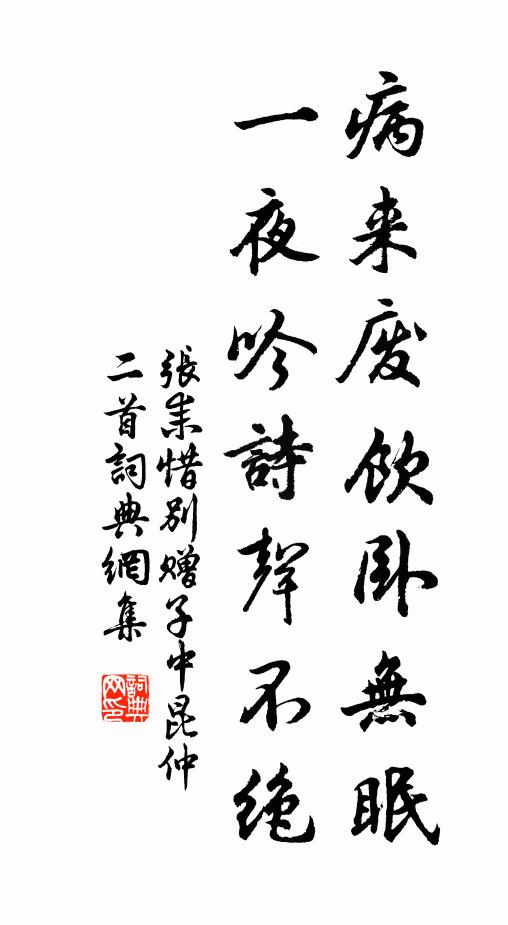 病来废飲卧無眠
一夜吟詩聲不绝
張耒惜别赠子中昆仲
二首詞典網集
詞典网印